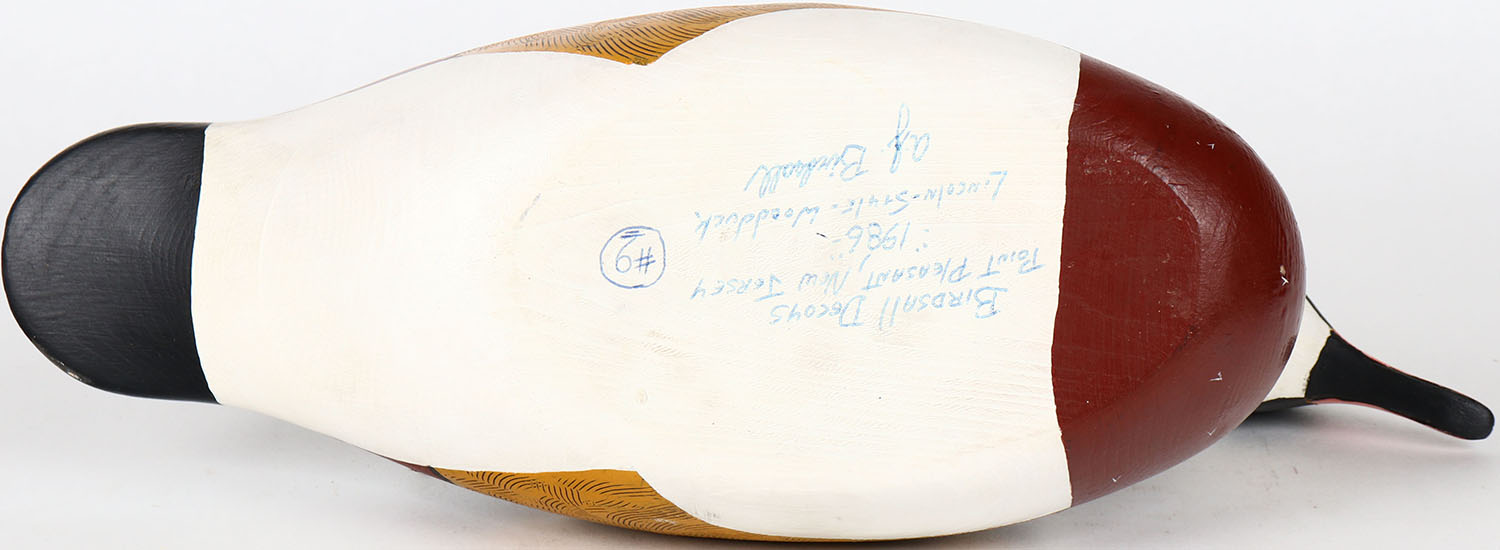 Birdsall Decoys
Point Pleasant, New Jersey
"1986"
Lincoln-Style-Woodduck.
A.J. Birdsall